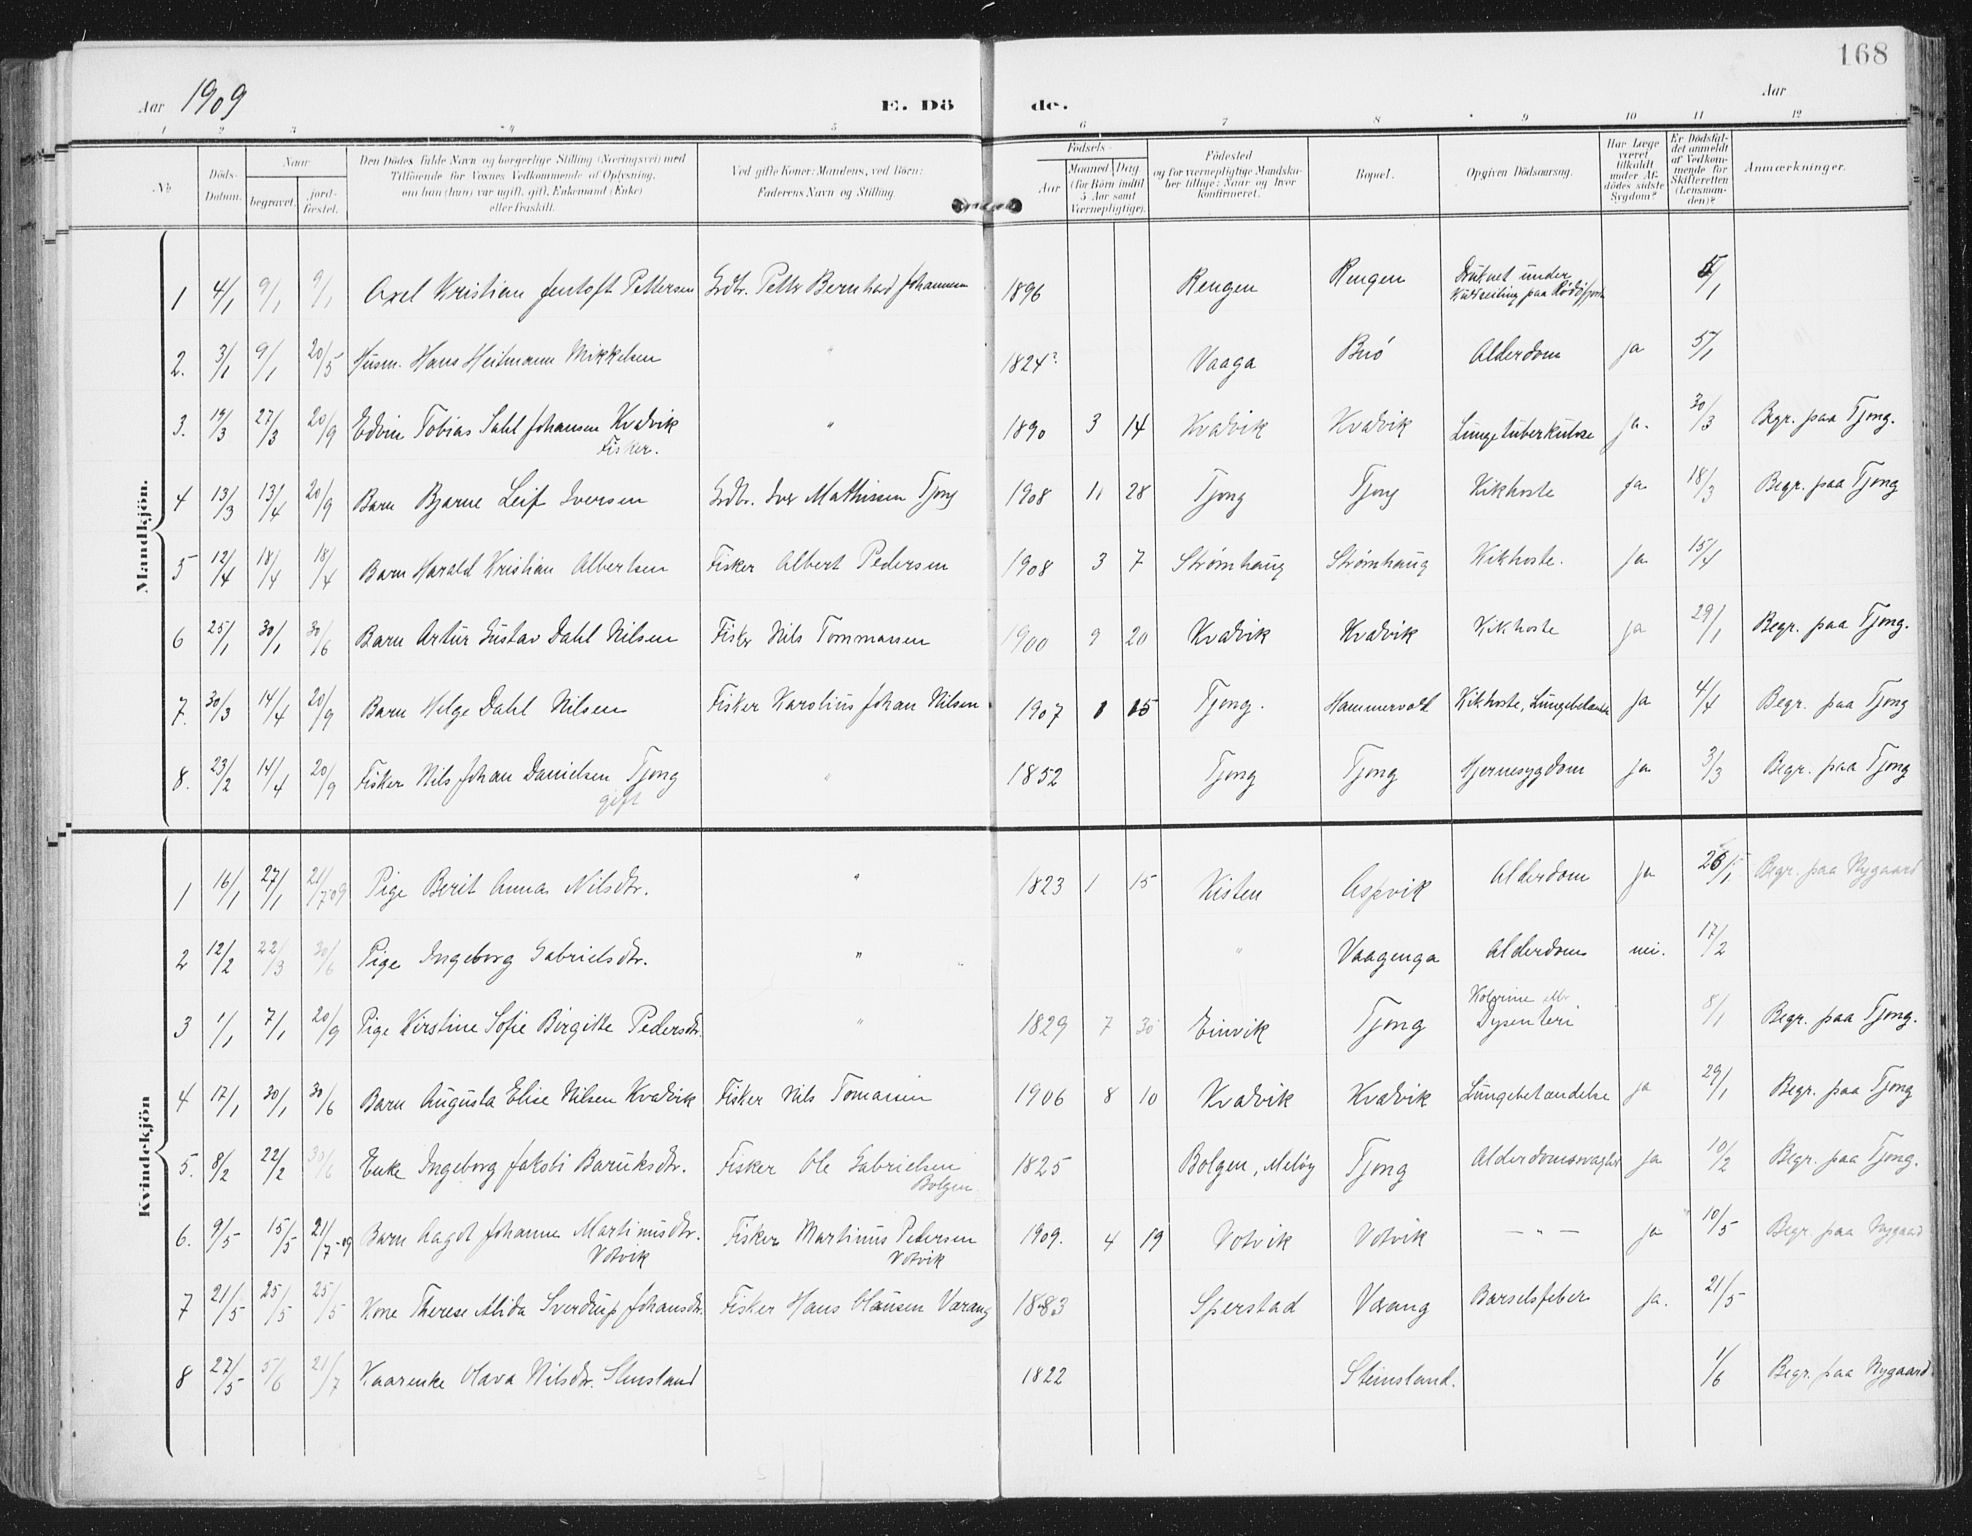 168
Aar 1909 E. Dö de. Aar
1 2 3 4 5 6 7 8 9 10 11 12
No
Döds-Datum.
Naar
begravet.
jord-fæstet.
Den Dödes fulde Navn og borgerlige Stilling (Næringsvei) med
Tilföiende for Voxnes Vedkommende af Oplysning,
om han (hun) var ugift, gift, Enkemand (Enke)
eller fraskilt.
Ved gifte Koner: Mandens, ved Börn:
Faderens Navn og Stilling.
Födsels-
Aar
Maaned Dag
(for Börn indtil
5 Aar samt
Værnepligtige).
Födested
og for værnepligtige Mandska-
ber tillige: Naar og hvor
konfirmeret.
Bopæl.
Opgiven Dödsaarsag.
Har Læge
været
tilkaldt
under Af-
dödes sidste
Sygdom?
Er Dödsfal-
det anmeldt
af Vedkom-
mende for
Skifteretten
(Lensman-
den)?
Anmærkninger.
Mandkjön.
1 4/1 9/1 9/1 Axel Kristian Jentoft Pettersen Grdbr. Petter Bernhard Johannsen 1896 Rengen Rengen Druknet under
Kulseiling paa Rödöfjord 5/1
2. 3/1 9/1 20/5 Husm. Hans Heitmann Mikkelsen " 1824? Vaaga Buö Alderdom ja 5/1
3. 19/3 27/3 20/9 Edvin Tobias Dahl Johansen Kvadvik " 1890 3 14 Kvadvik Kvadvik Lungetuberkulose ja. 30/3 Begr. paa Tjong.
Fisker.
4 13/3 13/4 20/9 Barn Bjarne Leif Iversen Grdbr. Iver Mathissen Tjong 1908 11 28 Tjong Tjong Kikhoste ja 18/3 Begr. paa Tjong
5 12/4 18/4 18/4 Barn Harald Kristian Albertsen Fisker Albert Pedersen 1908 3 7 Strømhaug Strømhaug Kikhoste. ja 15/4
6 25/1 30/1 30/6 Barn Artur Gustav Dahl Nilsen Fisker Nils Tommassen 1900 9 20 Kvadvik Kvadvik Kikhoste ja 29/1 Begr. paa Tjong.
7. 30/3 14/4 20/9 Barn Helge Dahl Nilsen Fisker Karolius Johan Nilsen 1907 1 15 Tjong. Hammervold Kikhoste, Lungebetændelse ja 4/4 Begr. paa Tjong
8. 23/2 14/4 20/9 Fisker Nils Johan Danielsen Tjong " 1852 Tjong Tjong Hjernesygdom ja 3/3 Begr. paa Tjong
gift
Kvindekjön
1 16/1 27/1 21/7 09 Pige Berit Annas Nilsdtr. " 1823 1 15 Kisten Aspvik Alderdom ja 26/1 Begr. paa Nygaard
2 12/2 22/3 30/6 Pige Ingeborg Gabrielsdtr. " " Vaagenga Alderdom nei. 17/2
3 1/1 7/1 20/9 Pige Kirstine Sofie Birgitte Pedersdtr. " 1829 7 30 Einvik Tjong Kolerine ell.
Dysenteri 8/1 Begr. paa Tjong.
4 17/1 30/1 30/6 Barn Augusta Elise Nilsen Kvadvik Fisker Nils Tomassen 1906 8 10 Kvadvik Kvadvik Lungebetændelse ja 29/1 Begr. paa Tjong
5. 8/2 22/2 30/6 Enke Ingeborg Jakobi Baruksdtr. Fisker Ole Gabrielsen 1825 Bolgen, Meløy Tjong Alderdomssvaghed ja 10/2 Begr. paa Tjong.
Bolgen
6. 9/5 15/5 21/7-09 Barn Aagot Johanne Martinusdtr. Fisker Martinus Pedersen 1909. 4 19 Votvik Votvik — " — ja 10/5 Begr. paa Nygaard
Votvik Votvik
7 21/5 25/5 25/5 Kone Therese Alida Sverdrup Johansdtr. Fisker Hans Clausen Værang 1883 Sperstad Værang Barselsfeber ja. 21/5
8 27/5 5/6 21/7 Kaarenke Olava Nilsdtr. Stensland 1822 Steinsland. 1/6 Begr. paa Nygaard.